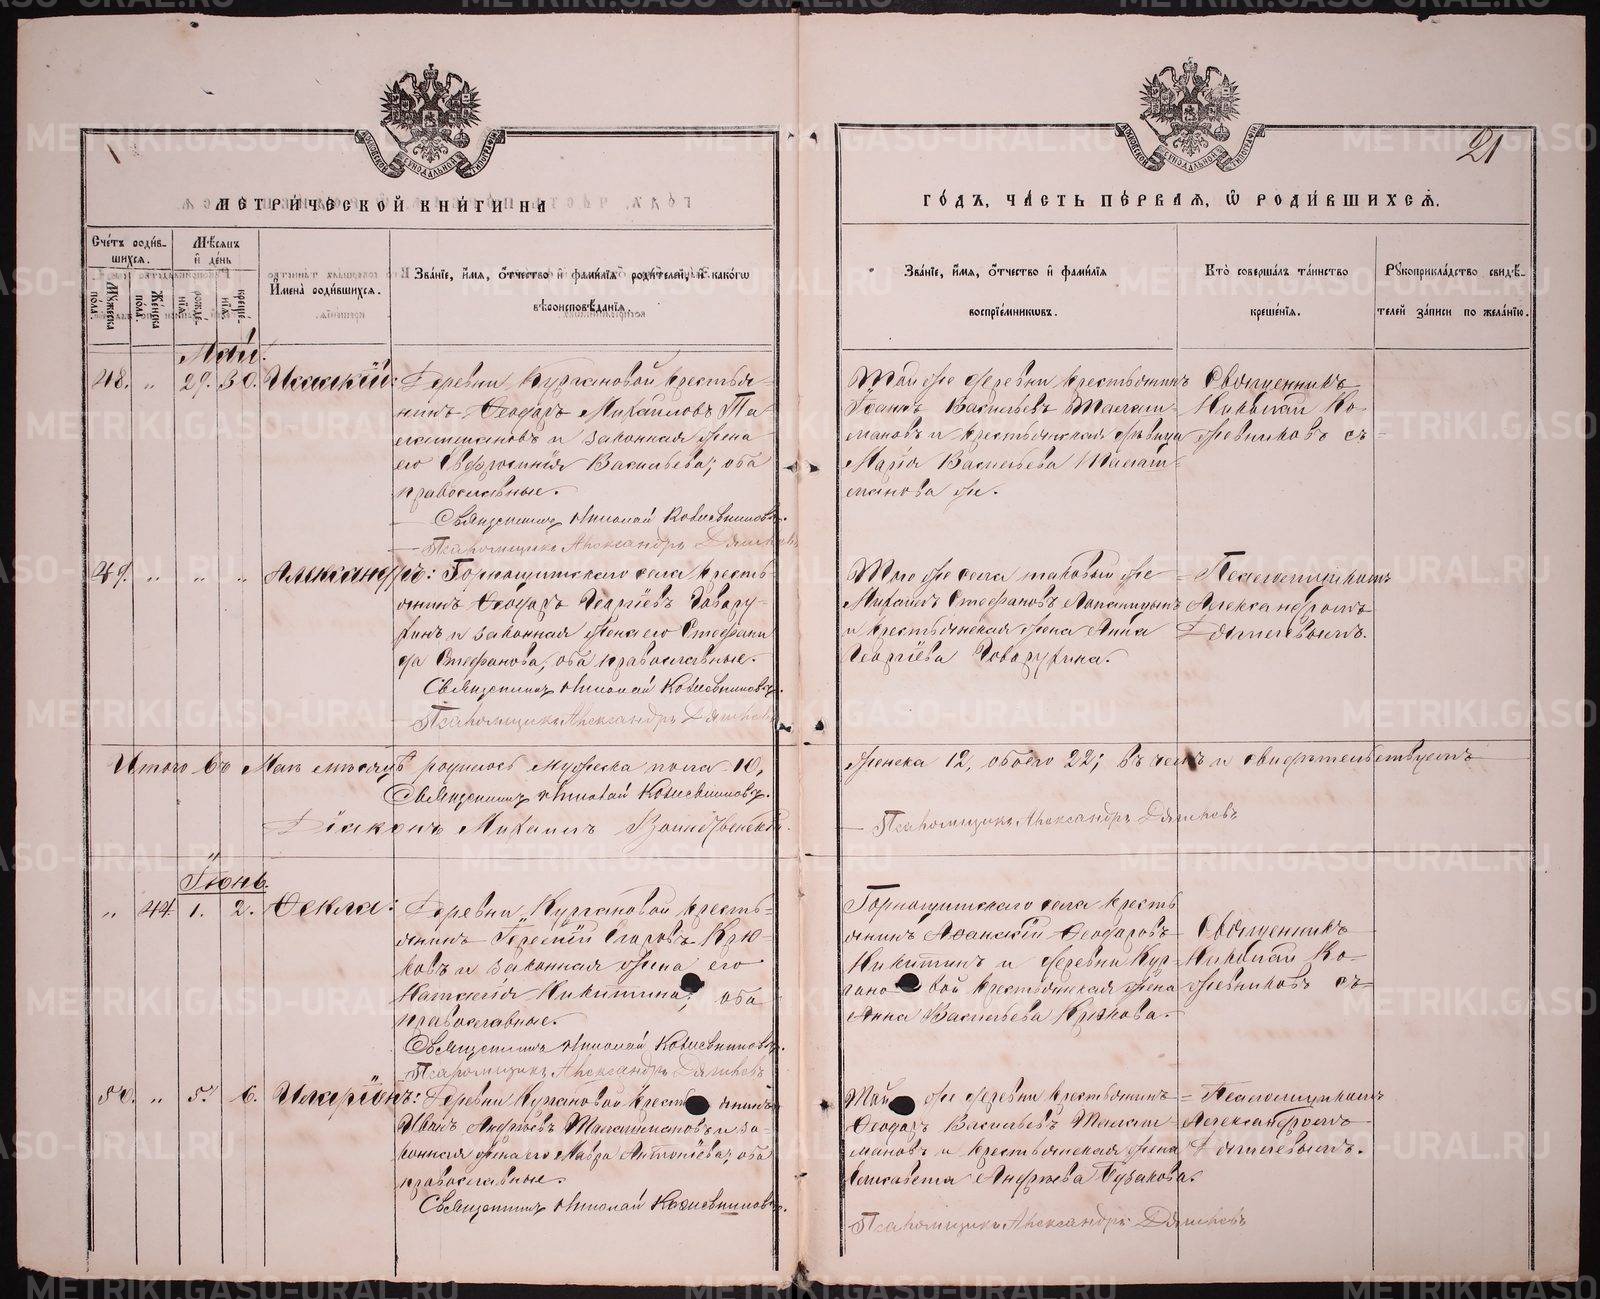 МЕТРИ́ЧЕСКОЙ КНИ́ГИ НА
Сче́тъ роди́в-
шихся.
Мѣ́сяцъ
и́ де́нь
Му́жеска по́ла.
Же́нска по́ла.
рожде́-
нїя.
креще́-
нїя.
И́мена̀ роди́вшихся.
Зва́нїе, и́мя, о́тчество и́ фами́лїя роди́телей, и́ како́гѡ
вѣроисповѣ́данїя.
Май.
48. „ 29. 30. Исаакій:
Деревни Кургановой крестья-
нинъ Ѳеодоръ Михаиловъ Та-
и законная жена
его Евфросинія Васильева; оба
православные.
Священникъ Николай Кожевниковъ.
Псаломщикъ Александръ
49. „ „ „ Александръ:
Горнощитскаго села кресть-
янинъ Ѳеодоръ Георгіевъ Говару-
хинъ и законная жена его Стефани-
да Стефанова, оба православные.
Священникъ Николай Кожевниковъ.
Псаломщикъ Александръ
Итого въ Маѣ мѣсяцѣ родилось мужеска пола 10,
Священникъ Николай Кожевниковъ.
Діаконъ Михаилъ
Іюнь.
„ 44. 1. 2. Ѳекла:
Деревни Кургановой кресть-
янинъ Егоровъ Крю-
ковъ и законная жена его
Наталія Никитина; оба
православные.
Священникъ Николай Кожевниковъ.
Псаломщикъ Александръ
50. „ 5. 6. Иларіонъ:
Деревни Кургановой крестьянинъ
Иванъ Андреевъ и за-
конная жена его Мавра Антоніева; оба
православные.
Священникъ Николай Кожевниковъ.
21
ГО́ДЪ, ЧА́СТЬ ПЕ́РВАЯ, Ѡ РОДИ́ВШИХСЯ.
Зва́нїе, и́мя, о́тчество и́ фами́лїя
воспрїе́мниковъ.
Кто̀ соверша́лъ та́инство
креще́нїя.
Рꙋкоприкла́дство свидѣ́-
телей за́писи по жела́нїю.
Той же деревни крестьянинъ
Іоаннъ Васильевъ
и крестьянская дѣвица
Марія Васильева
Священникъ
Николай Ко-
жевниковъ съ
Того же села таковый же
Михаилъ Стефановъ
и крестьянская жена Анна
Георгіева Говарухина.
= Псаломщикомъ
Александромъ
женска 12, обоего 22; въ чемъ и свидѣтельствуемъ
Псаломщикъ Александръ
Горнощитскаго села кресть-
янинъ Аѳанасій Ѳеодоровъ
Никитинъ и деревни Кур-
гановой крестьянская жена
Анна Васильева Крюкова.
Священникъ
Николай Ко-
жевниковъ съ
Той же деревни крестьянинъ
Ѳеодоръ Васильевъ
и крестьянская жена
Елисавета Андреева
= Псаломщикомъ
Александромъ
Псаломщикъ Александръ
METRIKI.GASO-URAL.RU